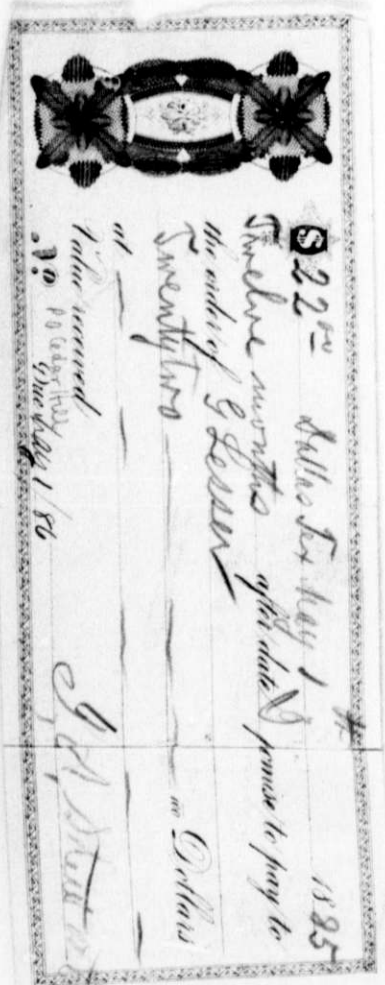 $ 22 00 Dallas Tex May 1 1885
Twelve months after date I promise to pay to
the order of G Lesser
Twentytwo no Dollars
at
Value received
No PO Cedar Hill Due May 1/86